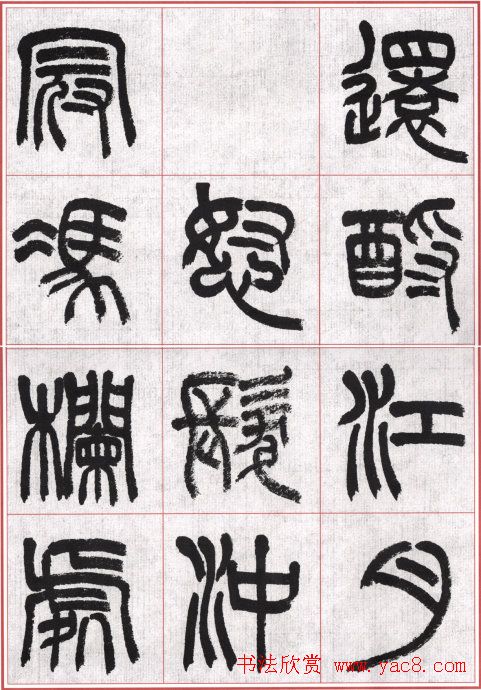 還酹江月
怒髮沖
冠馮欄處
书法欣赏 www.yac8.com